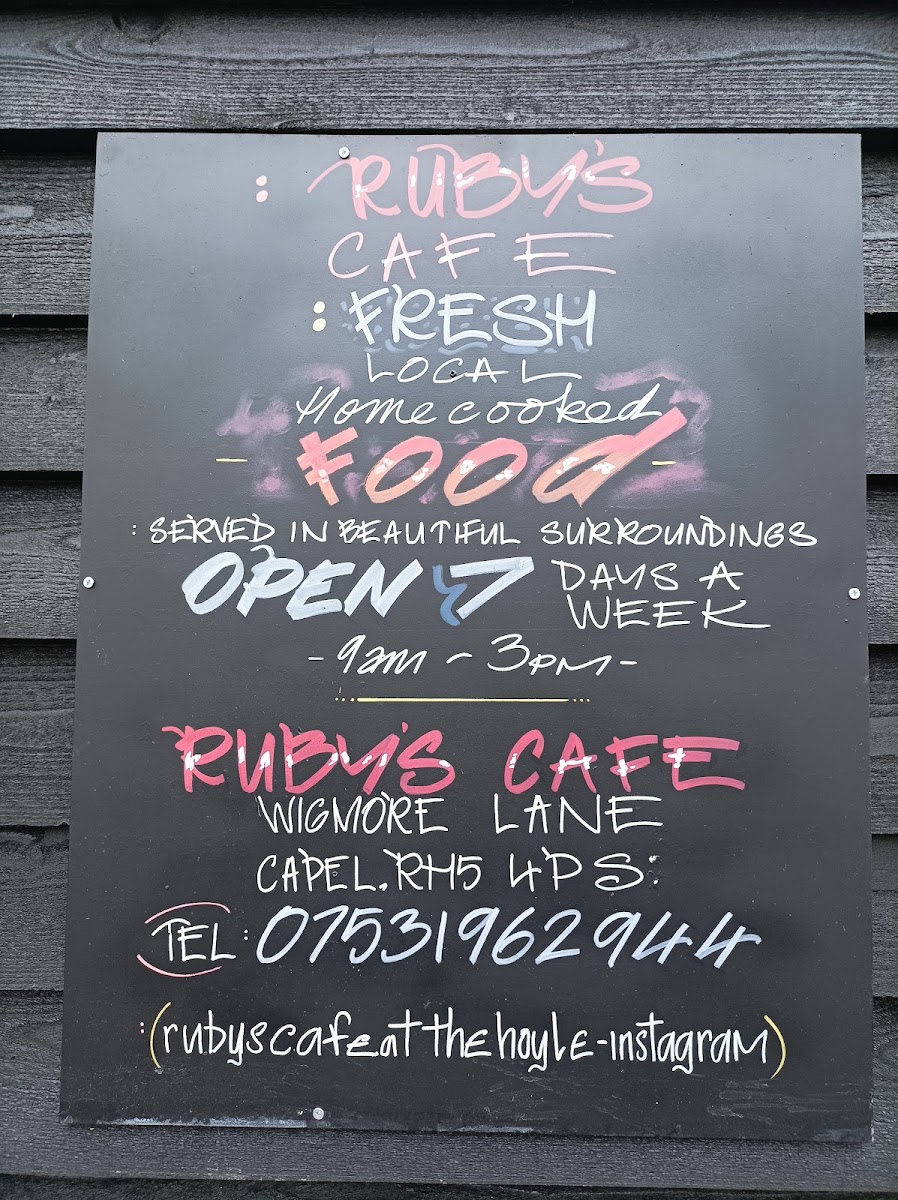 : RUBY'S
CAFE
: FRESH
LOCAL
Homecooked
- FOOD -
: SERVED IN BEAUTIFUL SURROUNDINGS
OPEN 7 DAYS A
WEEK
- 9am ~ 3pm -
RUBY'S CAFE
WIGMORE LANE
CAPEL. RH5 4PS:
TEL: 07531962944
:(rubyscafeatthehoyle-instagram)